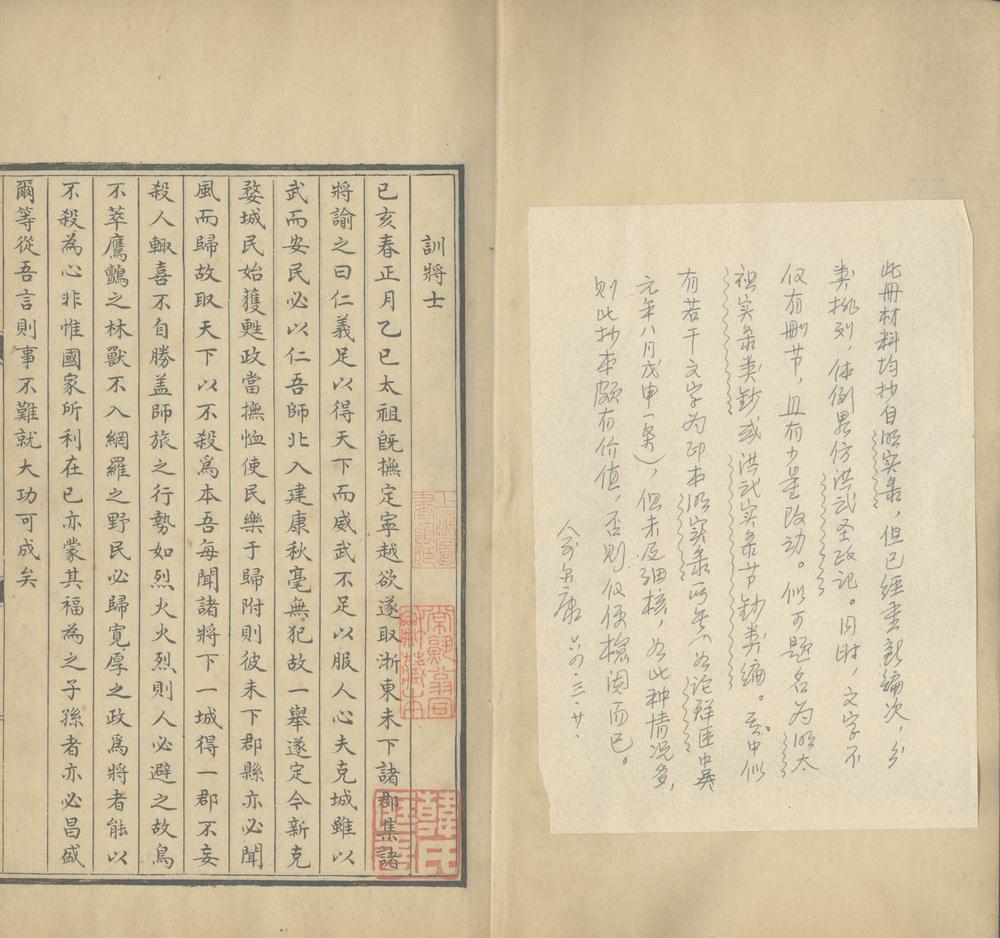 此册材料均抄自明实录，但已经重新编次，分
类排列，体例略仿洪武圣政记。同时，文字不
仅有删节，且有少量改动。似可题名为明太
祖实录类钞或洪武实录节钞类编。其中似
有若干文字为印本明实录所无（如论鲜匪中
元年八月戊申一条），但未及细核，如此种情况多，
则此抄本颇有价值，否则仅便检阅而已。
六四·三·廿·
訓將士
己亥春正月乙巳太祖既撫定寧越欲遂取浙東未下諸郡集諸
將諭之曰仁義足以得天下而威武不足以服人心夫克城雖以
武而安民必以仁吾師比入建康秋毫無犯故一舉遂定今新克
婺城民始獲甦政當撫恤使民樂于歸附則彼未下郡縣亦必聞
風而歸故取天下以不殺爲本吾每聞諸將下一城得一郡不妄
殺人輙喜不自勝盖師旅之行勢如烈火火烈則人必避之故鳥
不萃鷹鸇之林獸不入網羅之野民必歸寬厚之政爲將者能以
不殺為心非惟國家所利在已亦蒙其福為之子孫者亦必昌盛
爾等從吾言則事不難就大功可成矣